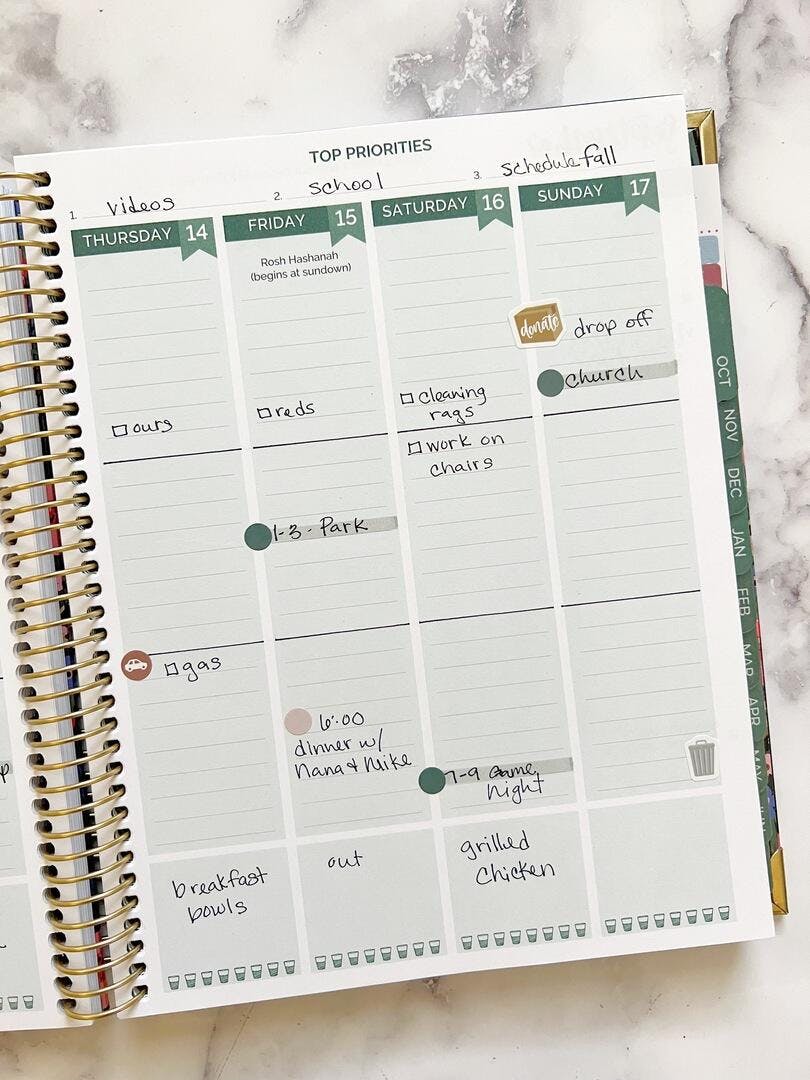 TOP PRIORITIES
1. videos 2. school 3. schedule fall
THURSDAY 14
ours
gas
breakfast
bowls
FRIDAY 15
Rosh Hashanah
(begins at sundown)
reds
1-3 - Park
6:00
dinner w/
Nana & Mike
out
SATURDAY 16
cleaning
rags
work on
chairs
7-9 Game
night
grilled
Chicken
SUNDAY 17
donate drop off
church
OCT
NOV
DEC
JAN
FEB
MAR
APR
MAY